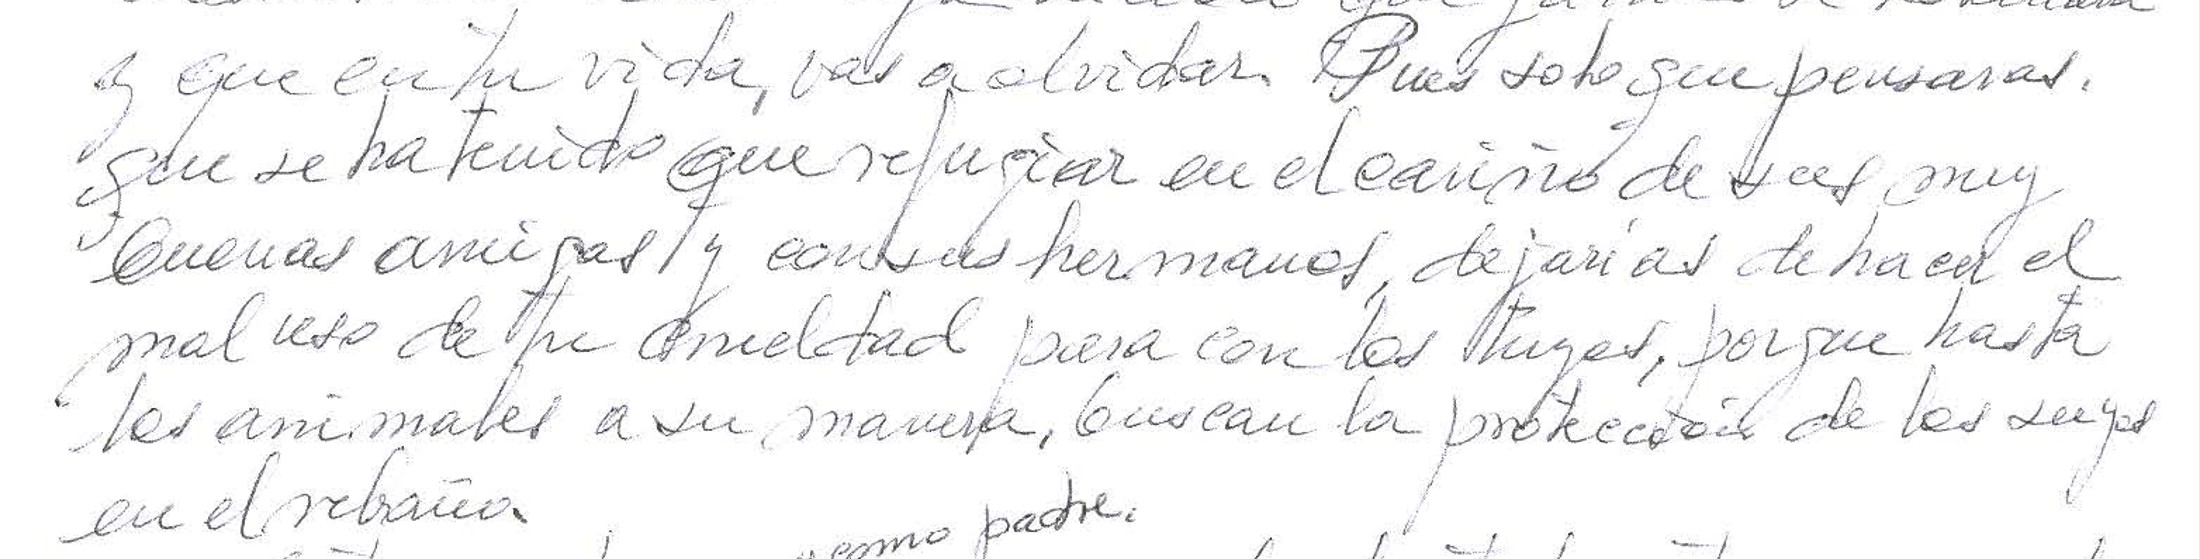 y que en tu vida, vas a olvidar. Pues solo que pensaras.
que se ha tenido que refugiar en el cariño de sus muy
buenas amigas y con sus hermanos, dejarías de hacer el
mal uso de tu crueldad para con los tuyos, porque hasta
los animales a su manera, buscan la protección de los suyos
en el rebaño.
como padre.